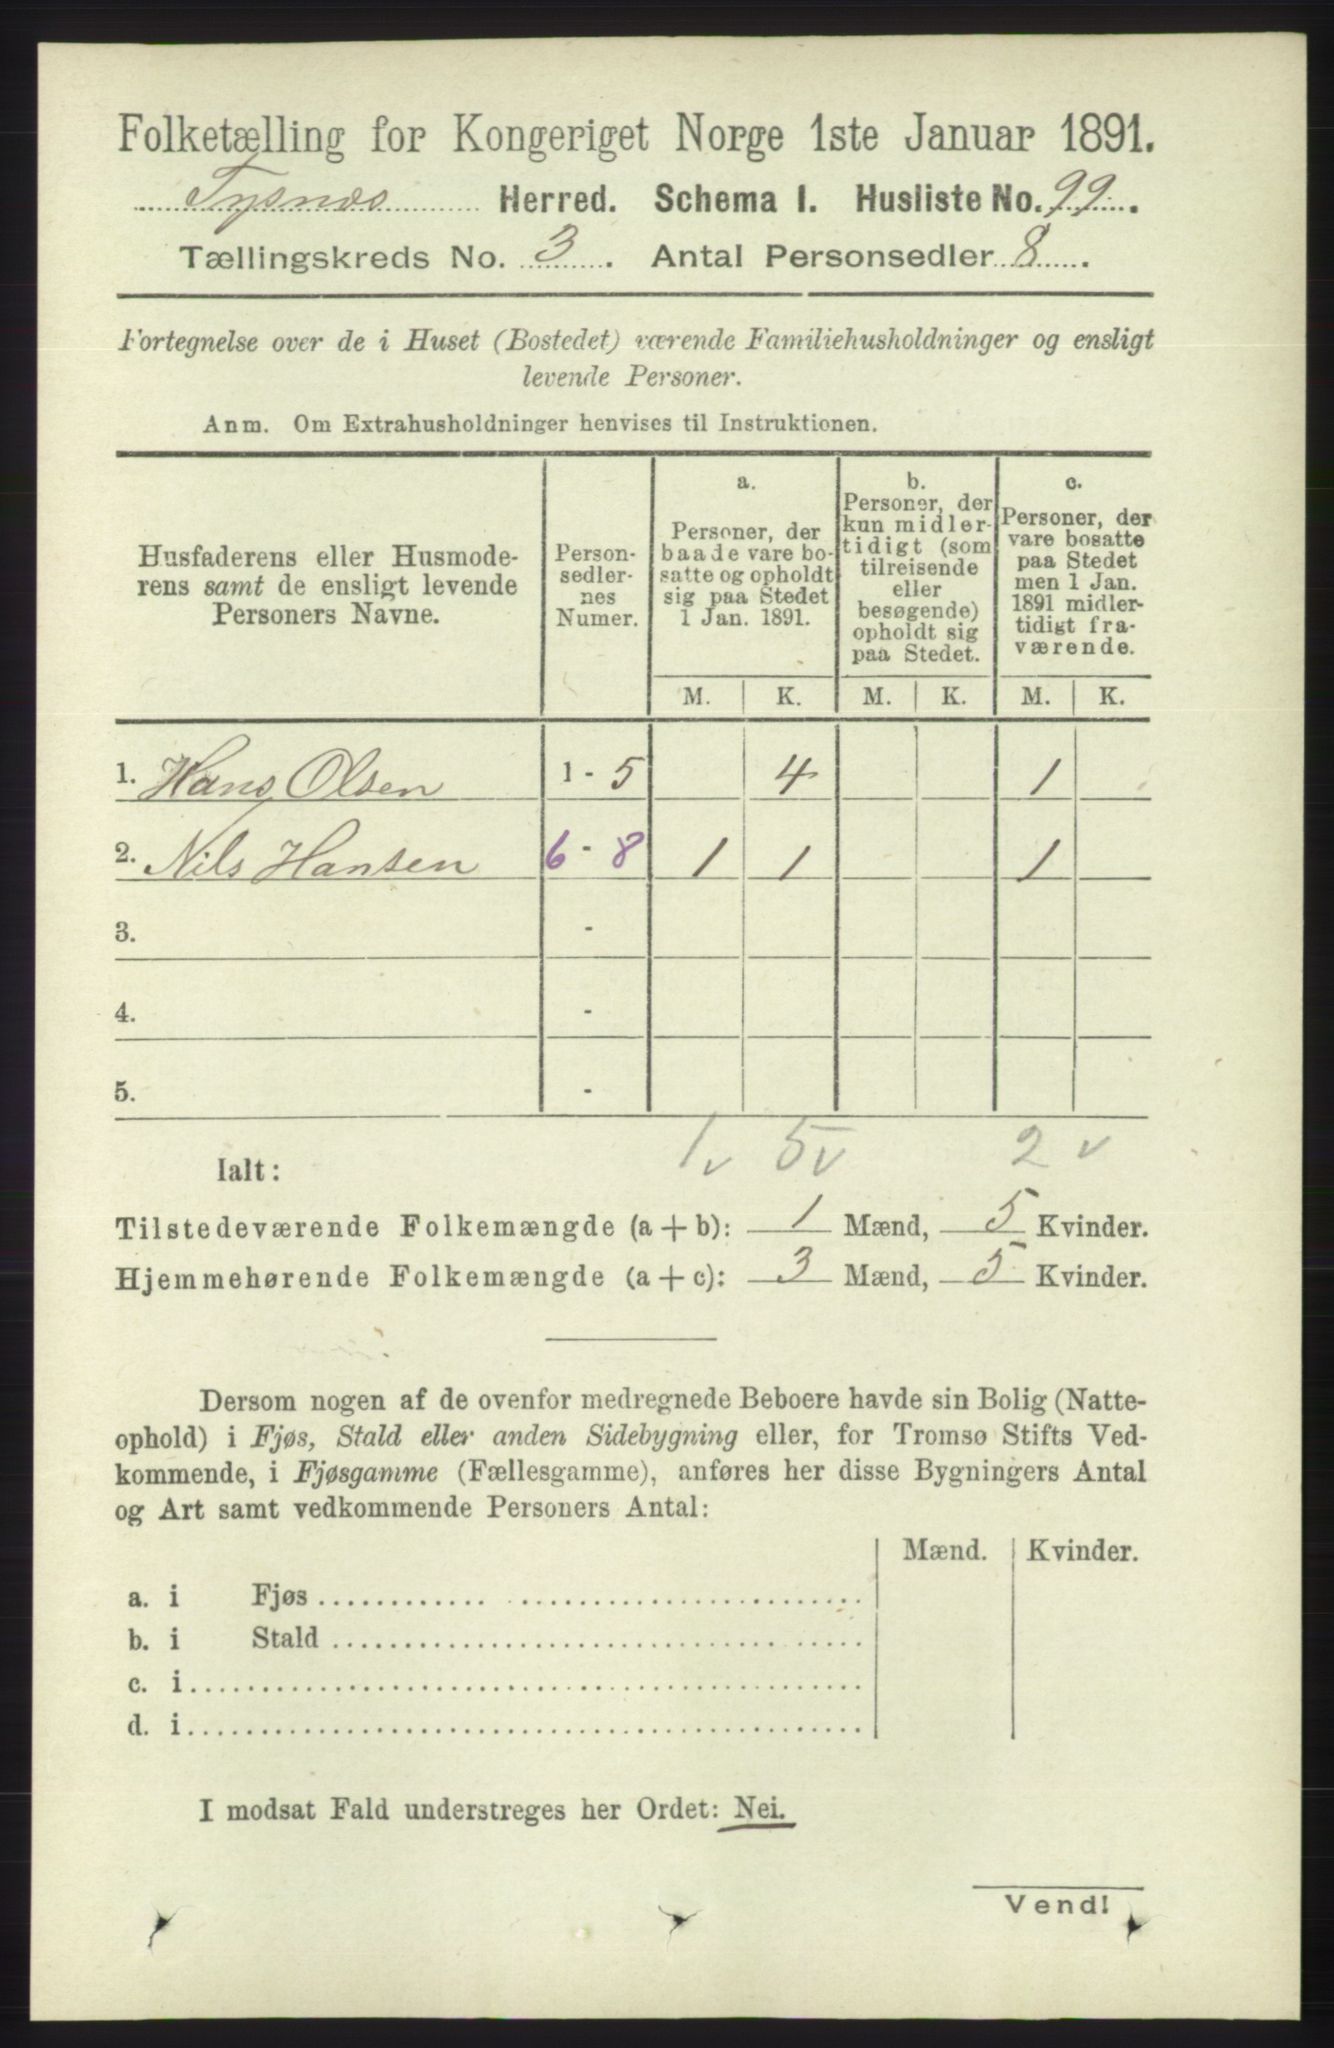 Folketælling for Kongeriget Norge 1ste Januar 1891.
Tysnæs Herred. Schema I. Husliste No. 99.
Tællingskreds No. 3. Antal Personsedler 8.
Fortegnelse over de i Huset (Bostedet) værende Familiehusholdninger og ensligt
levende Personer.
Anm. Om Extrahusholdninger henvises til Instruktionen.
Husfaderens eller Husmode-
rens samt de ensligt levende
Personers Navne.
Person-
sedler-
nes
Numer.
a.
Personer, der
baade vare bo-
satte og opholdt
sig paa Stedet
1 Jan. 1891.
b.
Personer, der
kun midler-
tidigt (som
tilreisende
eller
besøgende)
opholdt sig
paa Stedet.
c.
Personer, der
vare bosatte
paa Stedet
men 1 Jan.
1891 midler-
tidigt fra-
værende.
M. K. M. K. M. K.
1. Hans Olsen 1 - 5 4 1
2. Nils Hansen 6 - 8 1 1 1
3. -
4. -
5. -
Ialt: 1 v 5 v 2 v
Tilstedeværende Folkemængde (a + b): 1 Mænd, 5 Kvinder.
Hjemmehørende Folkemængde (a + c): 3 Mænd, 5 Kvinder.
Dersom nogen af de ovenfor medregnede Beboere havde sin Bolig (Natte-
ophold) i Fjøs, Stald eller anden Sidebygning eller, for Tromsø Stifts Ved-
kommende, i Fjøsgamme (Fællesgamme), anføres her disse Bygningers Antal
og Art samt vedkommende Personers Antal:
Mænd. Kvinder.
a. i Fjøs
b. i Stald
c. i
d. i
I modsat Fald understreges her Ordet: Nei.
Vend!